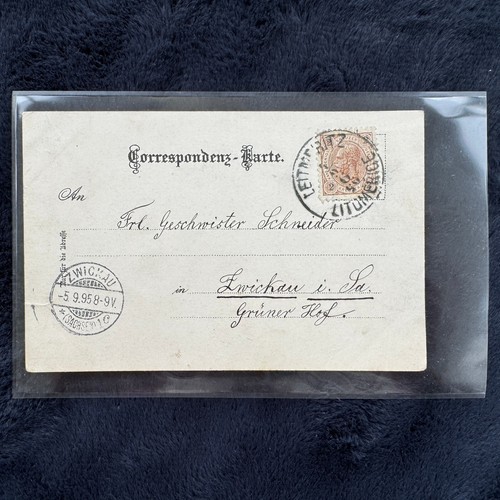 Correspondenz-Karte.
LEITMERITZ
LITOMĚŘICE
An
Frl. Geschwister Schneider
in Zwickau i. Sa.
Grüner Hof.
für die Adresse
ZWICKAU
-5.9.95 8-9V.
(SACHSEN) 1